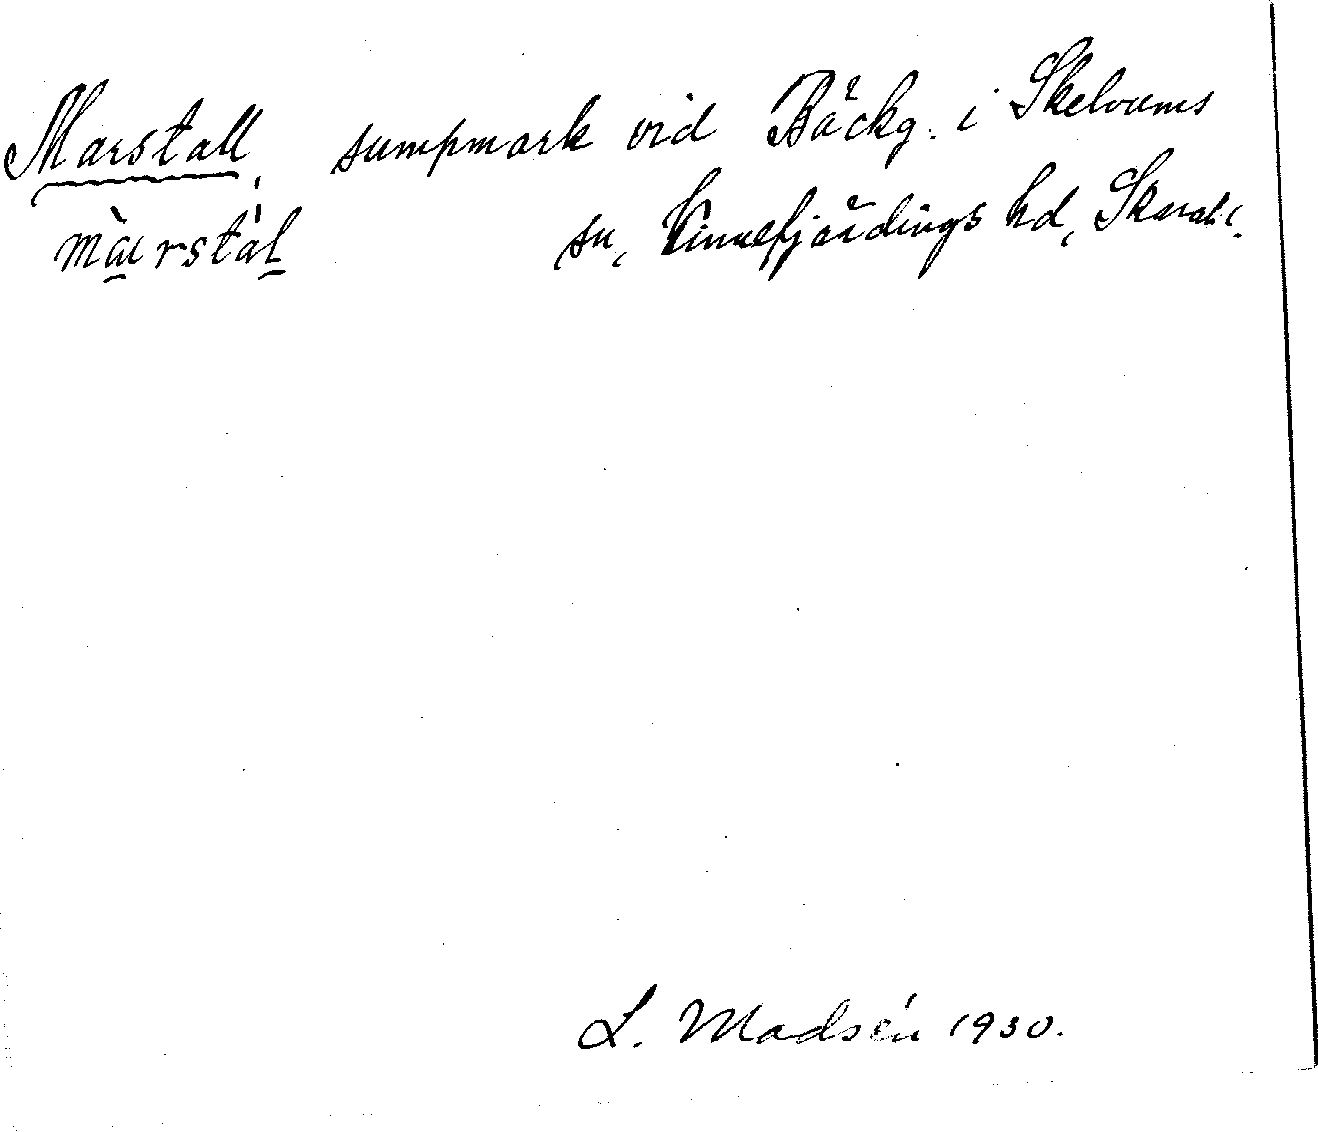 Marstall, sumpmark vid Bäckg. i Skelvums
màrstál sn, Kinnefjärdings hd, Skarab.
L. Madsén 1930.